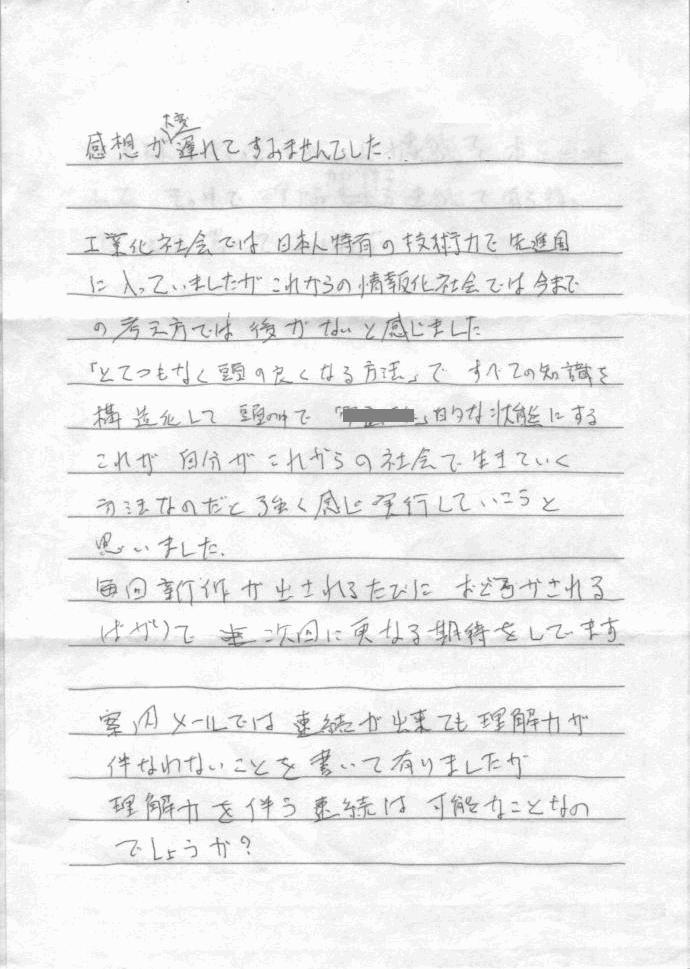 感想が大変遅れてすみませんでした..
工業化社会では日本人特有の技術力で先進国
に入っていましたがこれからの情報化社会では今まで
の考え方では後がないと感じました
「とてつもなく頭の良くなる方法」ですべての知識を
構造化して頭の中で「」的な状態にする
これが自分がこれからの社会で生きていく
方法なのだと強く感じ実行していこうと
思いました.
毎回新作が出されるたびにおどろかされる
ばかりで次回に更なる期待をしてます
案内メールでは速続が出来ても理解力が
件なわないことを書いて有りましたが
理解力を伴う速続は可能なことなの
でしょうか?